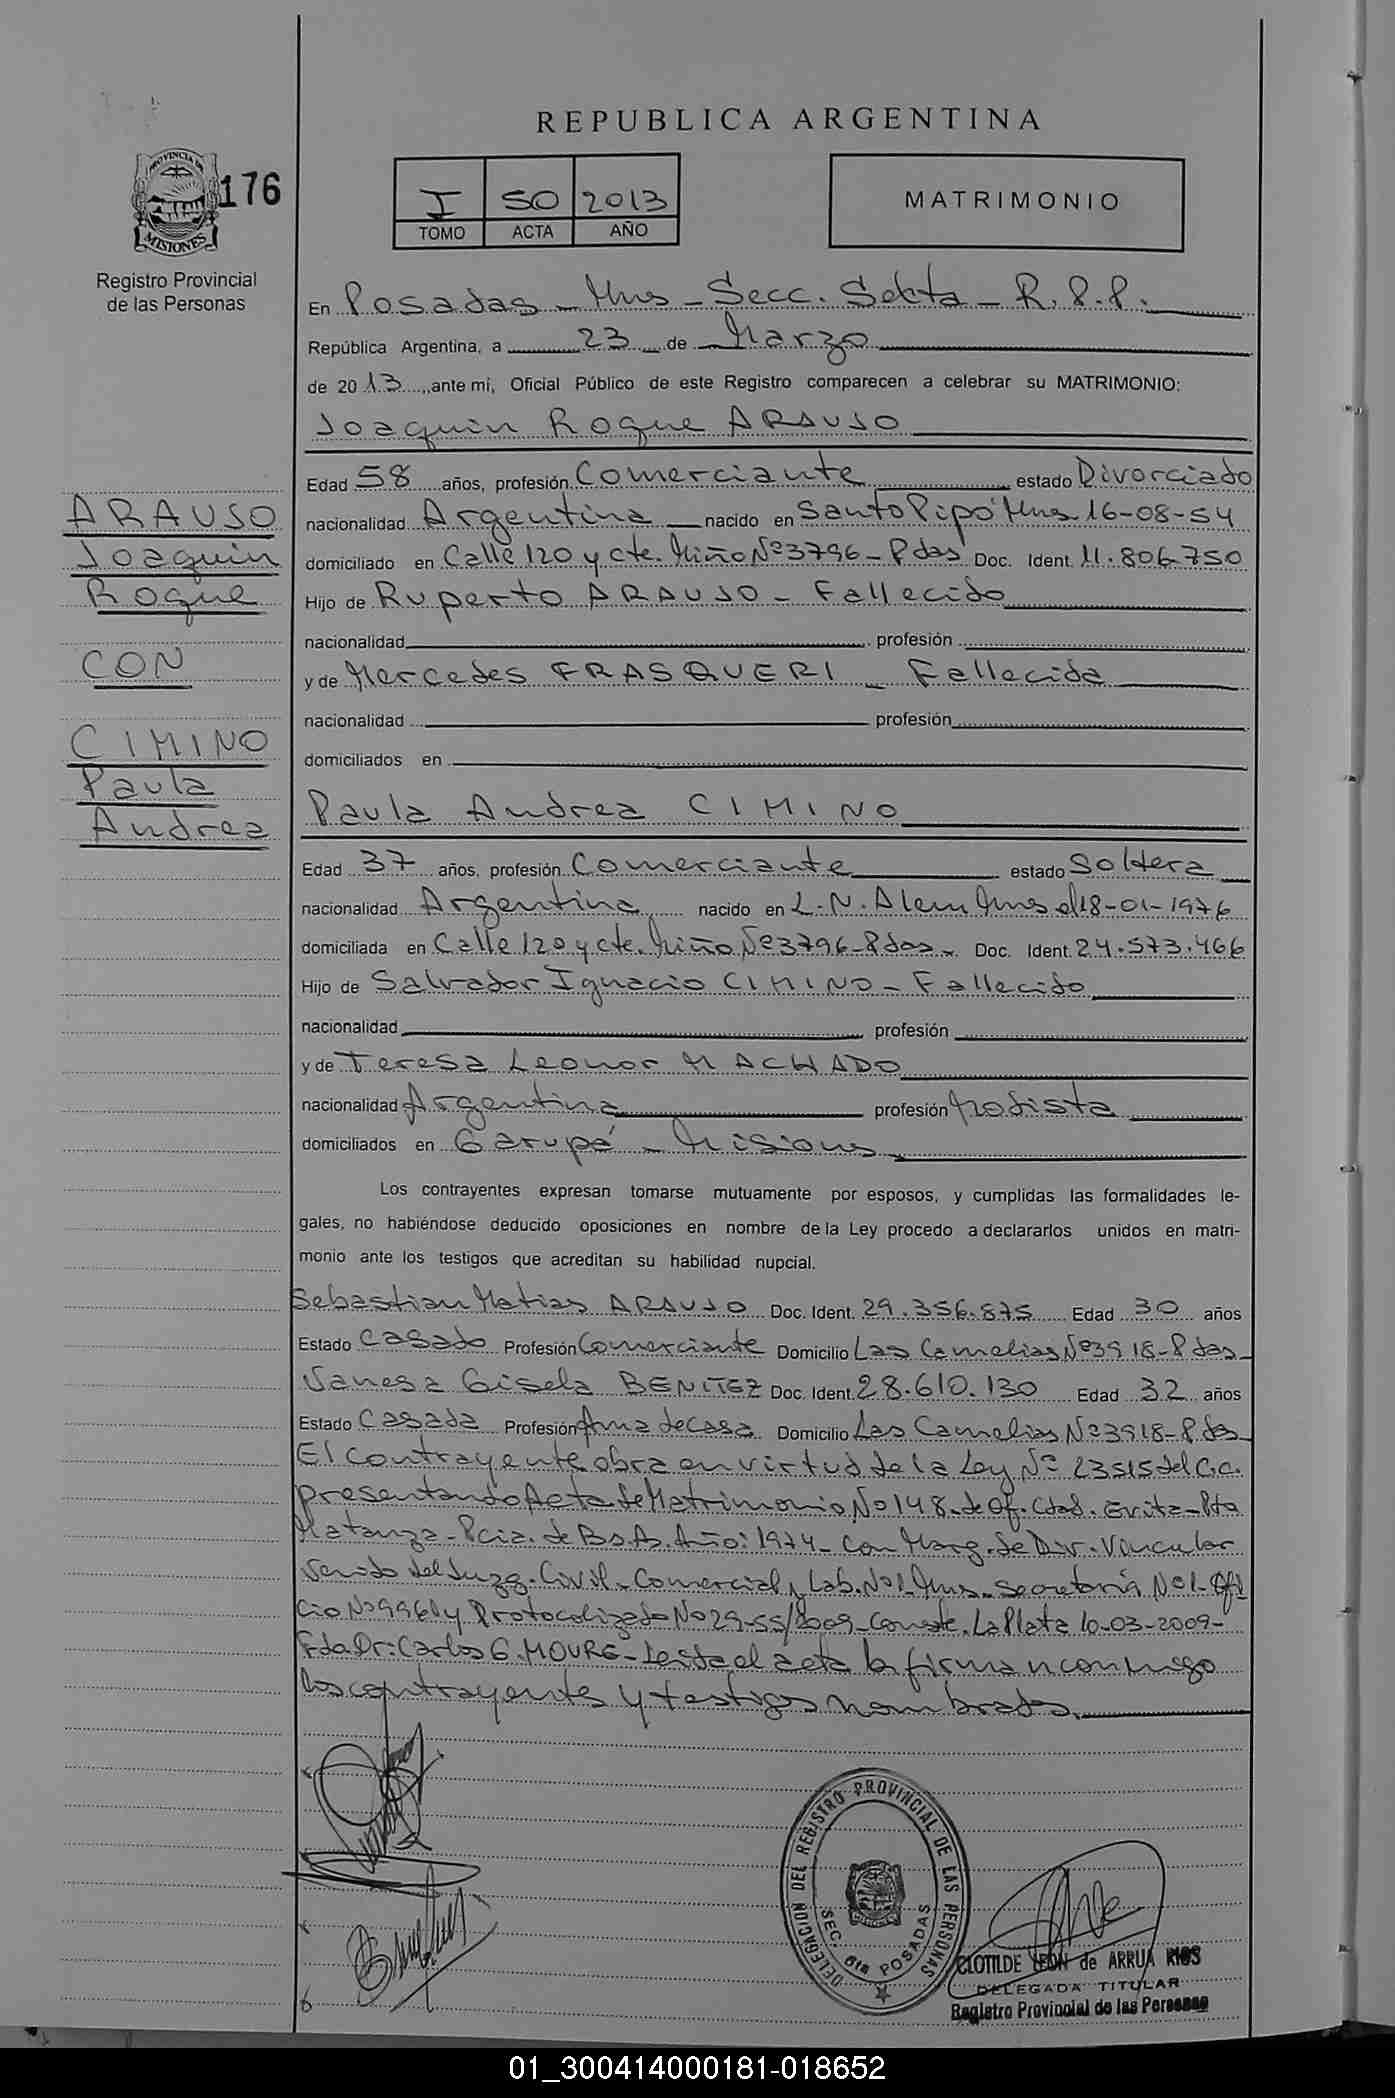 REPUBLICA ARGENTINA
PROVINCIA DE
MISIONES
176
Registro Provincial
de las Personas
I 50 2013
TOMO ACTA AÑO
MATRIMONIO
En Posadas - Mns - Secc. Sexta - R.P.P.
República Argentina, a 23 de Marzo
de 2013, ante mí, Oficial Público de este Registro comparecen a celebrar su MATRIMONIO:
Joaquin Roque ARAUJO
ARAUJO
Joaquin
Roque
CON
CIMINO
Paula
Andrea
Edad 58 años, profesión Comerciante estado Divorciado
nacionalidad Argentina nacido en Santo Pipó Mns 16-08-54
domiciliado en Calle 120 y cte. Miño Nº 3796 - Pdas Doc. Ident. 11.806.750
Hijo de Ruperto ARAUJO - Fallecido
nacionalidad profesión
y de Mercedes FRASQUERI - Fallecida
nacionalidad profesión
domiciliados en
Paula Andrea CIMINO
Edad 37 años, profesión Comerciante estado Soltera
nacionalidad Argentina nacido en L.N. Alem Mns el 18-01-1976
domiciliada en Calle 120 y cte. Miño Nº 3796 - Pdas - Doc. Ident. 24.573.466
Hijo de Salvador Ignacio CIMINO - Fallecido
nacionalidad profesión
y de Teresa Leonor MACHADO
nacionalidad Argentina profesión Modista
domiciliados en Garupá - Misiones
Los contrayentes expresan tomarse mutuamente por esposos, y cumplidas las formalidades le-
gales, no habiéndose deducido oposiciones en nombre de la Ley procedo a declararlos unidos en matri-
monio ante los testigos que acreditan su habilidad nupcial.
Sebastian Matias ARAUJO Doc. Ident. 29.356.875 Edad 30 años
Estado Casado Profesión Comerciante Domicilio Las Camelias Nº 3918 - Pdas -
Vanesa Gisela BENITEZ Doc. Ident. 28.610.130 Edad 32 años
Estado Casada Profesión Ama de Casa Domicilio Las Camelias Nº 3918 - Pdas -
El contrayente obra en virtud de la Ley Nº 23515 del C.C.
presentando Acta de Matrimonio Nº 148 - de Of. Cdad. Evita - Pdo
Matanza - Pcia. de Bs.As. Año: 1974 - Con Marg. de Div. Vincular
venido del Juzg. Civil - Comercial y Lab. Nº 1 Mns - Secretaría Nº 1 - Ofi
cio Nº 996 Protocolizado Nº 29-SS/2009 - La Plata 10-03-2009 -
Fdo. Dr: Carlos G. MOURE - Leida el acta la firman conmigo
los contrayentes y testigos nombrados.
DELEGACION DEL REGISTRO PROVINCIAL DE LAS PERSONAS
SEC. 6ta POSADAS
CLOTILDE LEON de ARRUA RIOS
DELEGADA TITULAR
Registro Provincial de las Personas
01_300414000181-018652